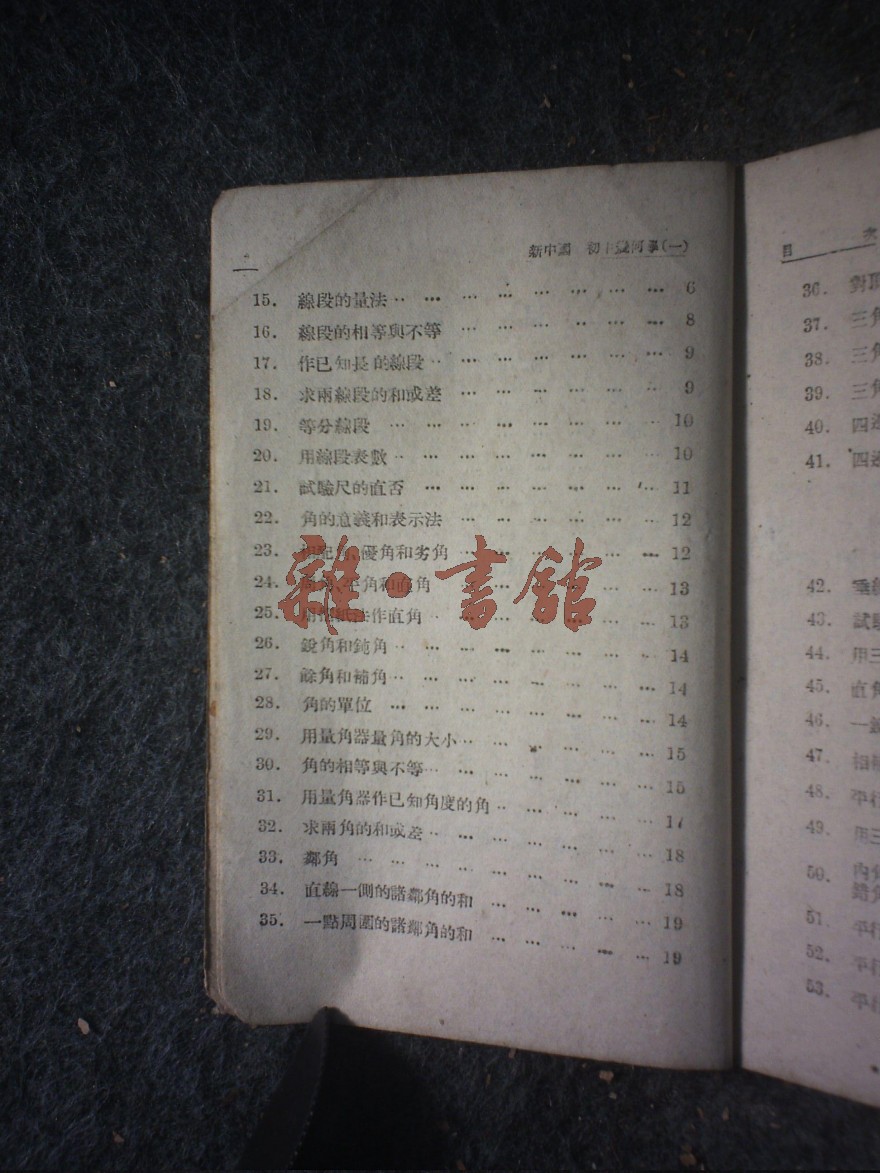 新中國 初中幾何學(一)
15. 線段的量法 … 6
16. 線段的相等與不等 … 8
17. 作已知長的線段 … 9
18. 求兩線段的和或差 … 9
19. 等分線段 … 10
20. 用線段表數 … 10
21. 試驗尺的直否 … 11
22. 角的意義和表示法 … 12
23. 優角和劣角 … 12
24. 平角和直角 … 13
25. 作直角 … 13
26. 銳角和鈍角 … 14
27. 餘角和補角 … 14
28. 角的單位 … 14
29. 用量角器量角的大小 … 15
30. 角的相等與不等 … 15
31. 用量角器作已知角度的角 … 17
32. 求兩角的和或差 … 18
33. 鄰角 … 18
34. 直線一側的諸鄰角的和 … 19
35. 一點周圍的諸鄰角的和 … 19
雜·書館
目 次
36. 對頂
37. 三角
38. 三角
39. 三角
40. 四邊
41. 四邊
42. 垂線
43. 試驗
44. 用三
45. 直角
46. 一銳
47. 相補
48. 平行
49. 用三
50. 內角
錯角
51. 平行
52. 平行
53. 平行